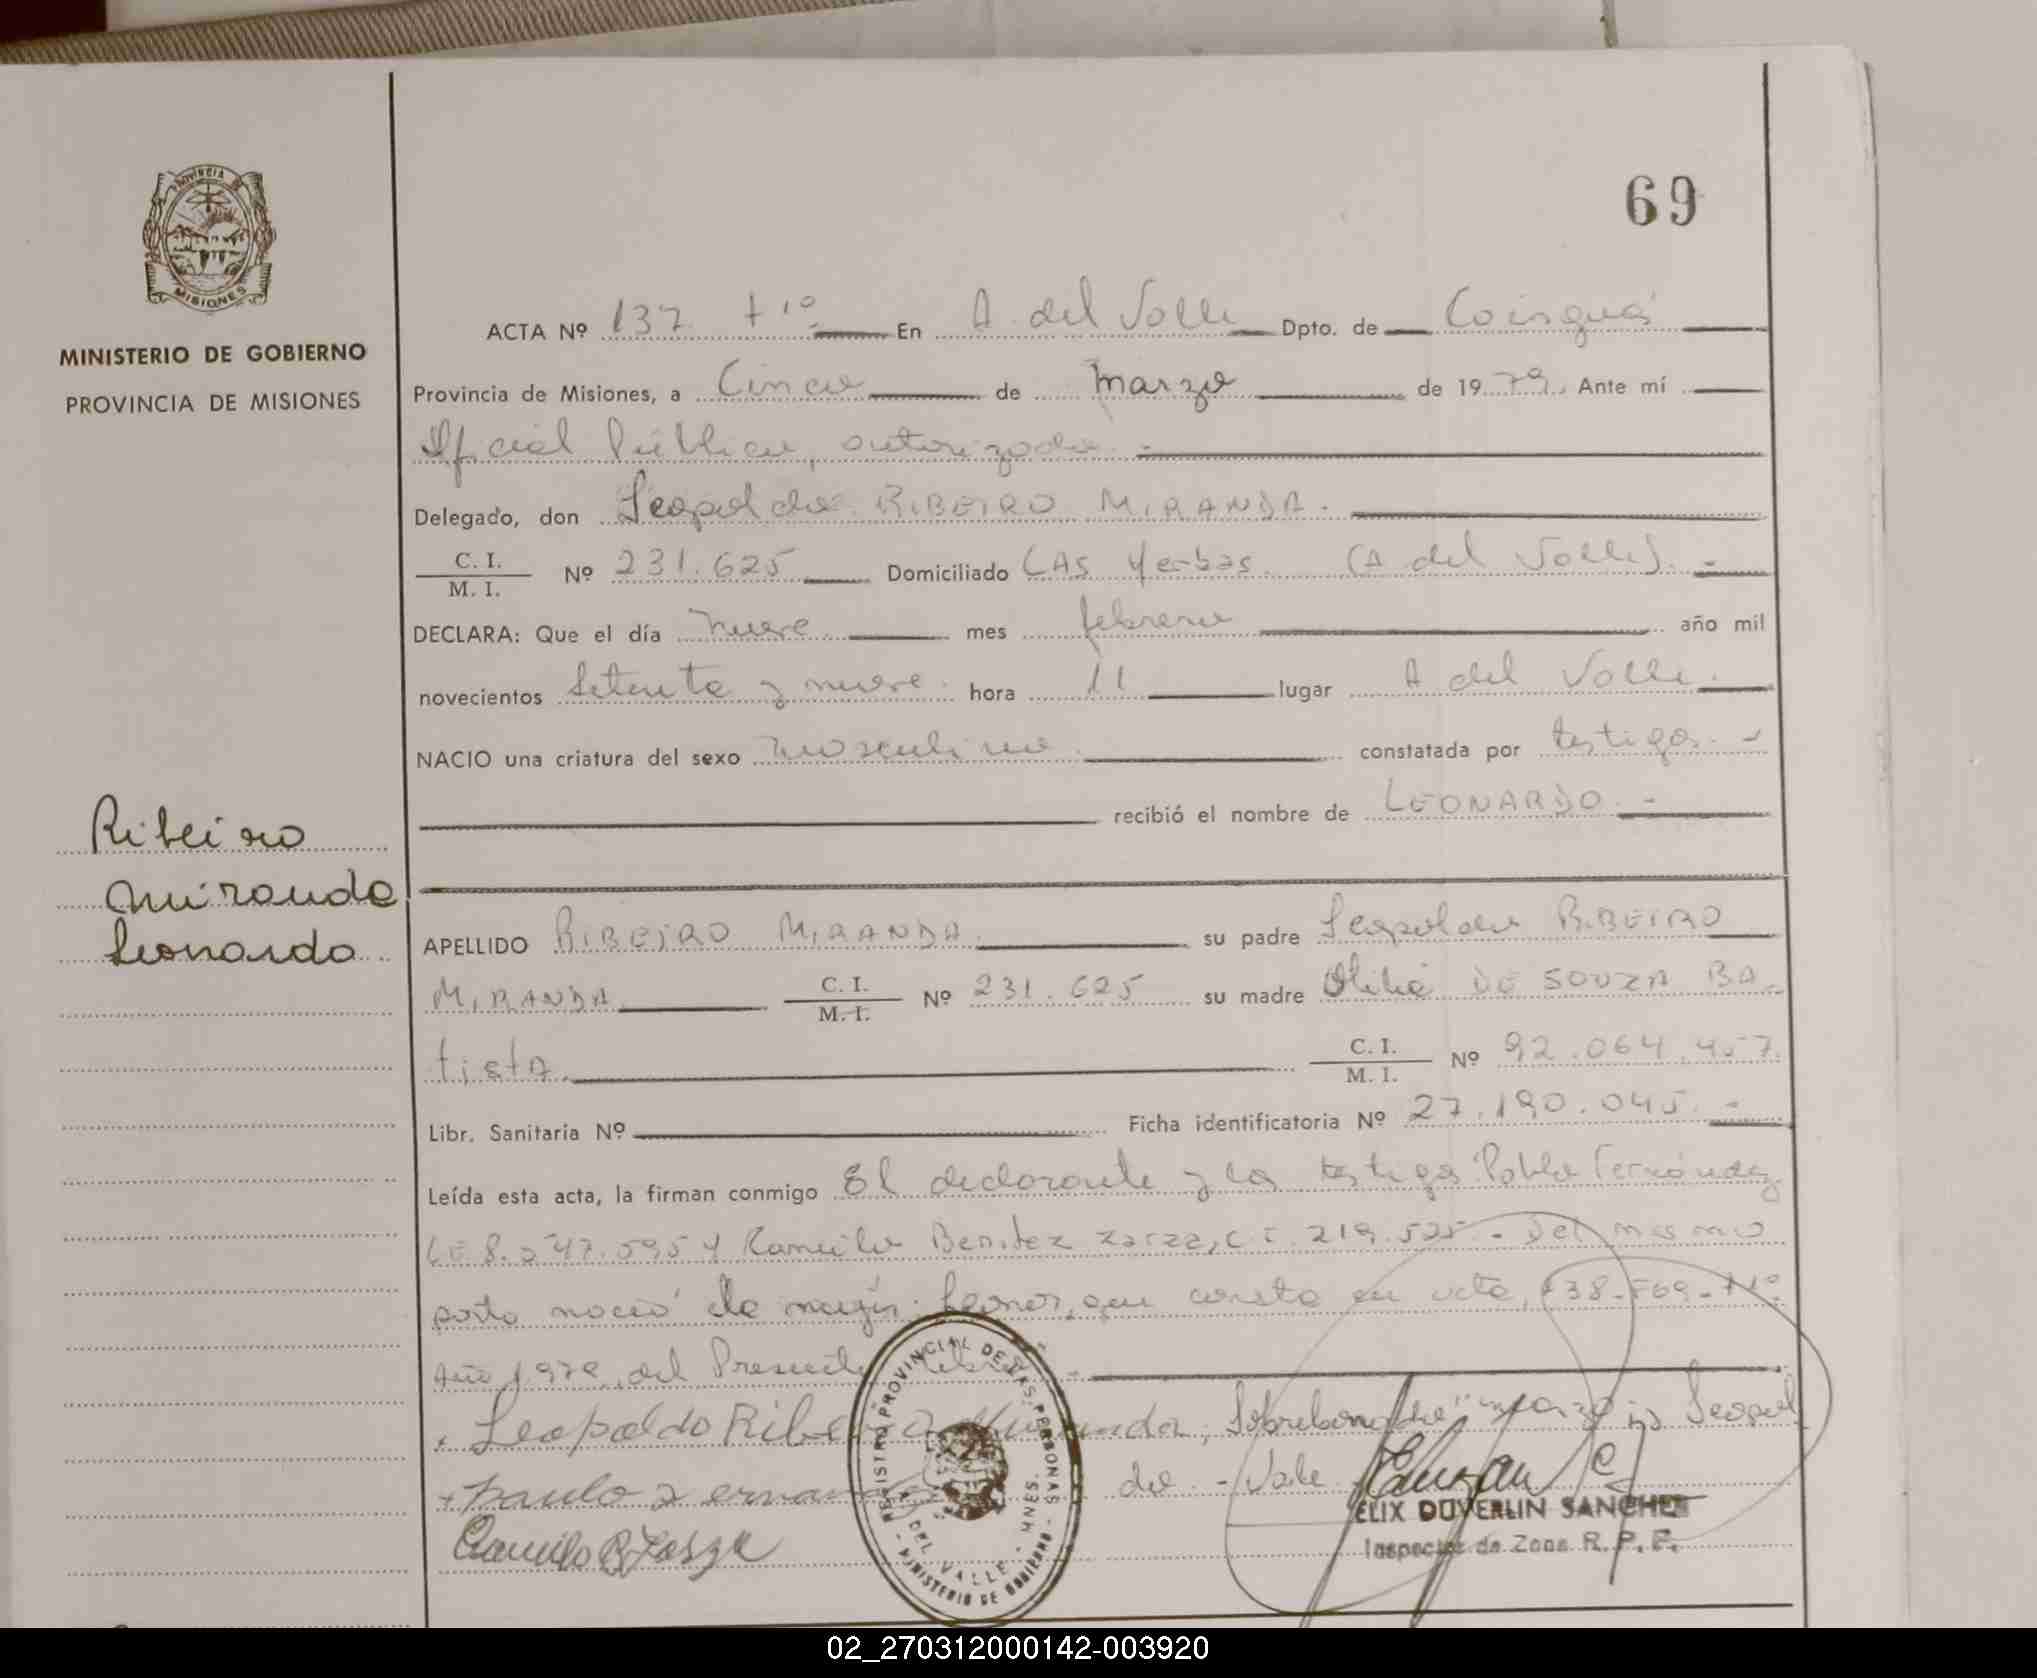 69
PROVINCIA DE
MISIONES
MINISTERIO DE GOBIERNO
PROVINCIA DE MISIONES
ACTA Nº 137 tº 1º En A. del Valle Dpto. de Cainguás
Provincia de Misiones, a Cinco de marzo de 1979. Ante mí
Oficial Público, autorizado. -
Delegado, don Leopoldo RIBEIRO MIRANDA. -
C. I.
M. I. Nº 231.625 Domiciliado LAS Yerbas (A del Valle). -
DECLARA: Que el día nueve mes febrero año mil
novecientos Setenta y nueve. hora 11 lugar A del Valle.
NACIO una criatura del sexo masculino. constatada por testigos. -
recibió el nombre de LEONARDO. -
Ribeiro
Miranda
Leonardo
APELLIDO RIBEIRO MIRANDA. su padre Leopoldo RIBEIRO
MIRANDA C. I.
M. I. Nº 231.625 su madre DE SOUZA BA-
tistA. C. I.
M. I. Nº 92.064.457.
Libr. Sanitaria Nº Ficha identificatoria Nº 27.190.045. -
Leída esta acta, la firman conmigo El declarante y los testigos Pablo Fernández
Benitez zarza, C I. 219.525. - Del mismo
parto nació Leonor, que consta en acta, 138 - Fº 69 - Tº 1º
Año 1979, del Presente libro. -
Leopoldo Ribeiro Miranda, Sobreborrado "marzo" Leopol
do. - Vale.
Camilo B Zarza
REGISTRO PROVINCIAL DE LAS PERSONAS
A DEL VALLE - MNES.
MINISTERIO DE GOBIERNO
ELIX DUVERLIN SANCHEZ
Inspector de Zona R. P. P.
02_270312000142-003920